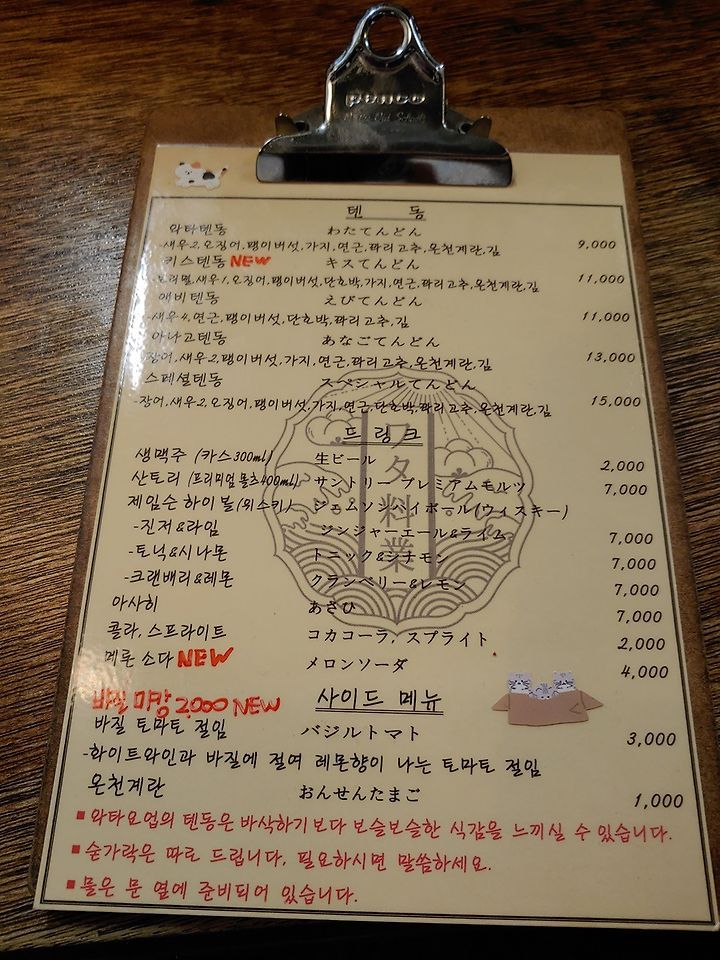 penco
텐 동
와타텐동 わたてんどん
-새우2,오징어,팽이버섯,가지,연근,꽈리고추,온천계란,김 9,000
키스텐동 NEW キスてんどん
-보리멸,새우1,오징어,팽이버섯,단호박,가지,연근,꽈리고추,온천계란,김 11,000
애비텐동 えびてんどん
-새우4,연근,팽이버섯,단호박,꽈리고추,김 11,000
아나고텐동 あなごてんどん
-장어,새우2,팽이버섯,가지,연근,꽈리고추,온천계란,김 13,000
스페셜텐동 スペシャルてんどん
-장어,새우2,오징어,팽이버섯,가지,연근,단호박,꽈리고추,온천계란,김 15,000
드링크
ワタ料業
생맥주 (카스300ml) 生ビール 2,000
산토리 (프리미엄 몰츠400ml) サントリー プレミアムモルツ 7,000
제임슨 하이볼(위스키) ジェムソンハイボール(ウィスキー)
-진저&라임 ジンジャーエール&ライム 7,000
-토닉&시나몬 トニック&シナモン 7,000
-크랜배리&레몬 クランベリー&レモン 7,000
아사히 あさひ 7,000
콜라, 스프라이트 コカコーラ, スプライト 2,000
메론 소다 NEW メロンソーダ 4,000
바질 마왕 2,000 NEW
사이드 메뉴
바질 토마토 절임 バジルトマト 3,000
-화이트와인과 바질에 절여 레몬향이 나는 토마토 절임
온천계란 おんせんたまご 1,000
▪와타요업의 텐동은 바삭하기보다 보슬보슬한 식감을 느끼실 수 있습니다.
▪숟가락은 따로 드립니다, 필요하시면 말씀하세요.
▪물은 문 옆에 준비되어 있습니다.